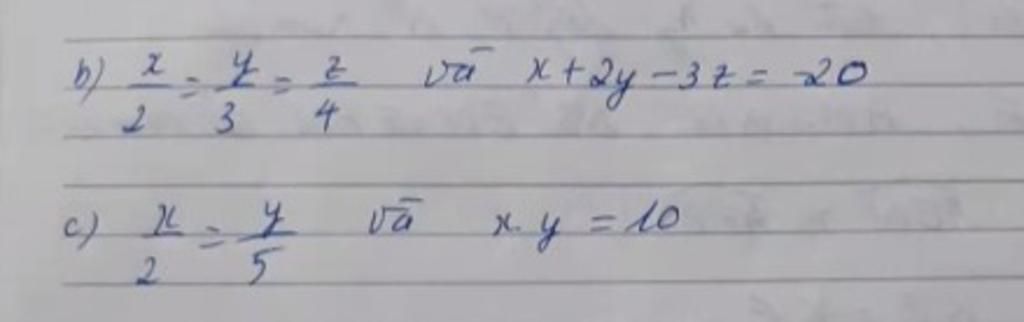 b) x/2 = y/3 = z/4 và x + 2y - 3z = -20
c) x/2 = y/5 và x.y = 10